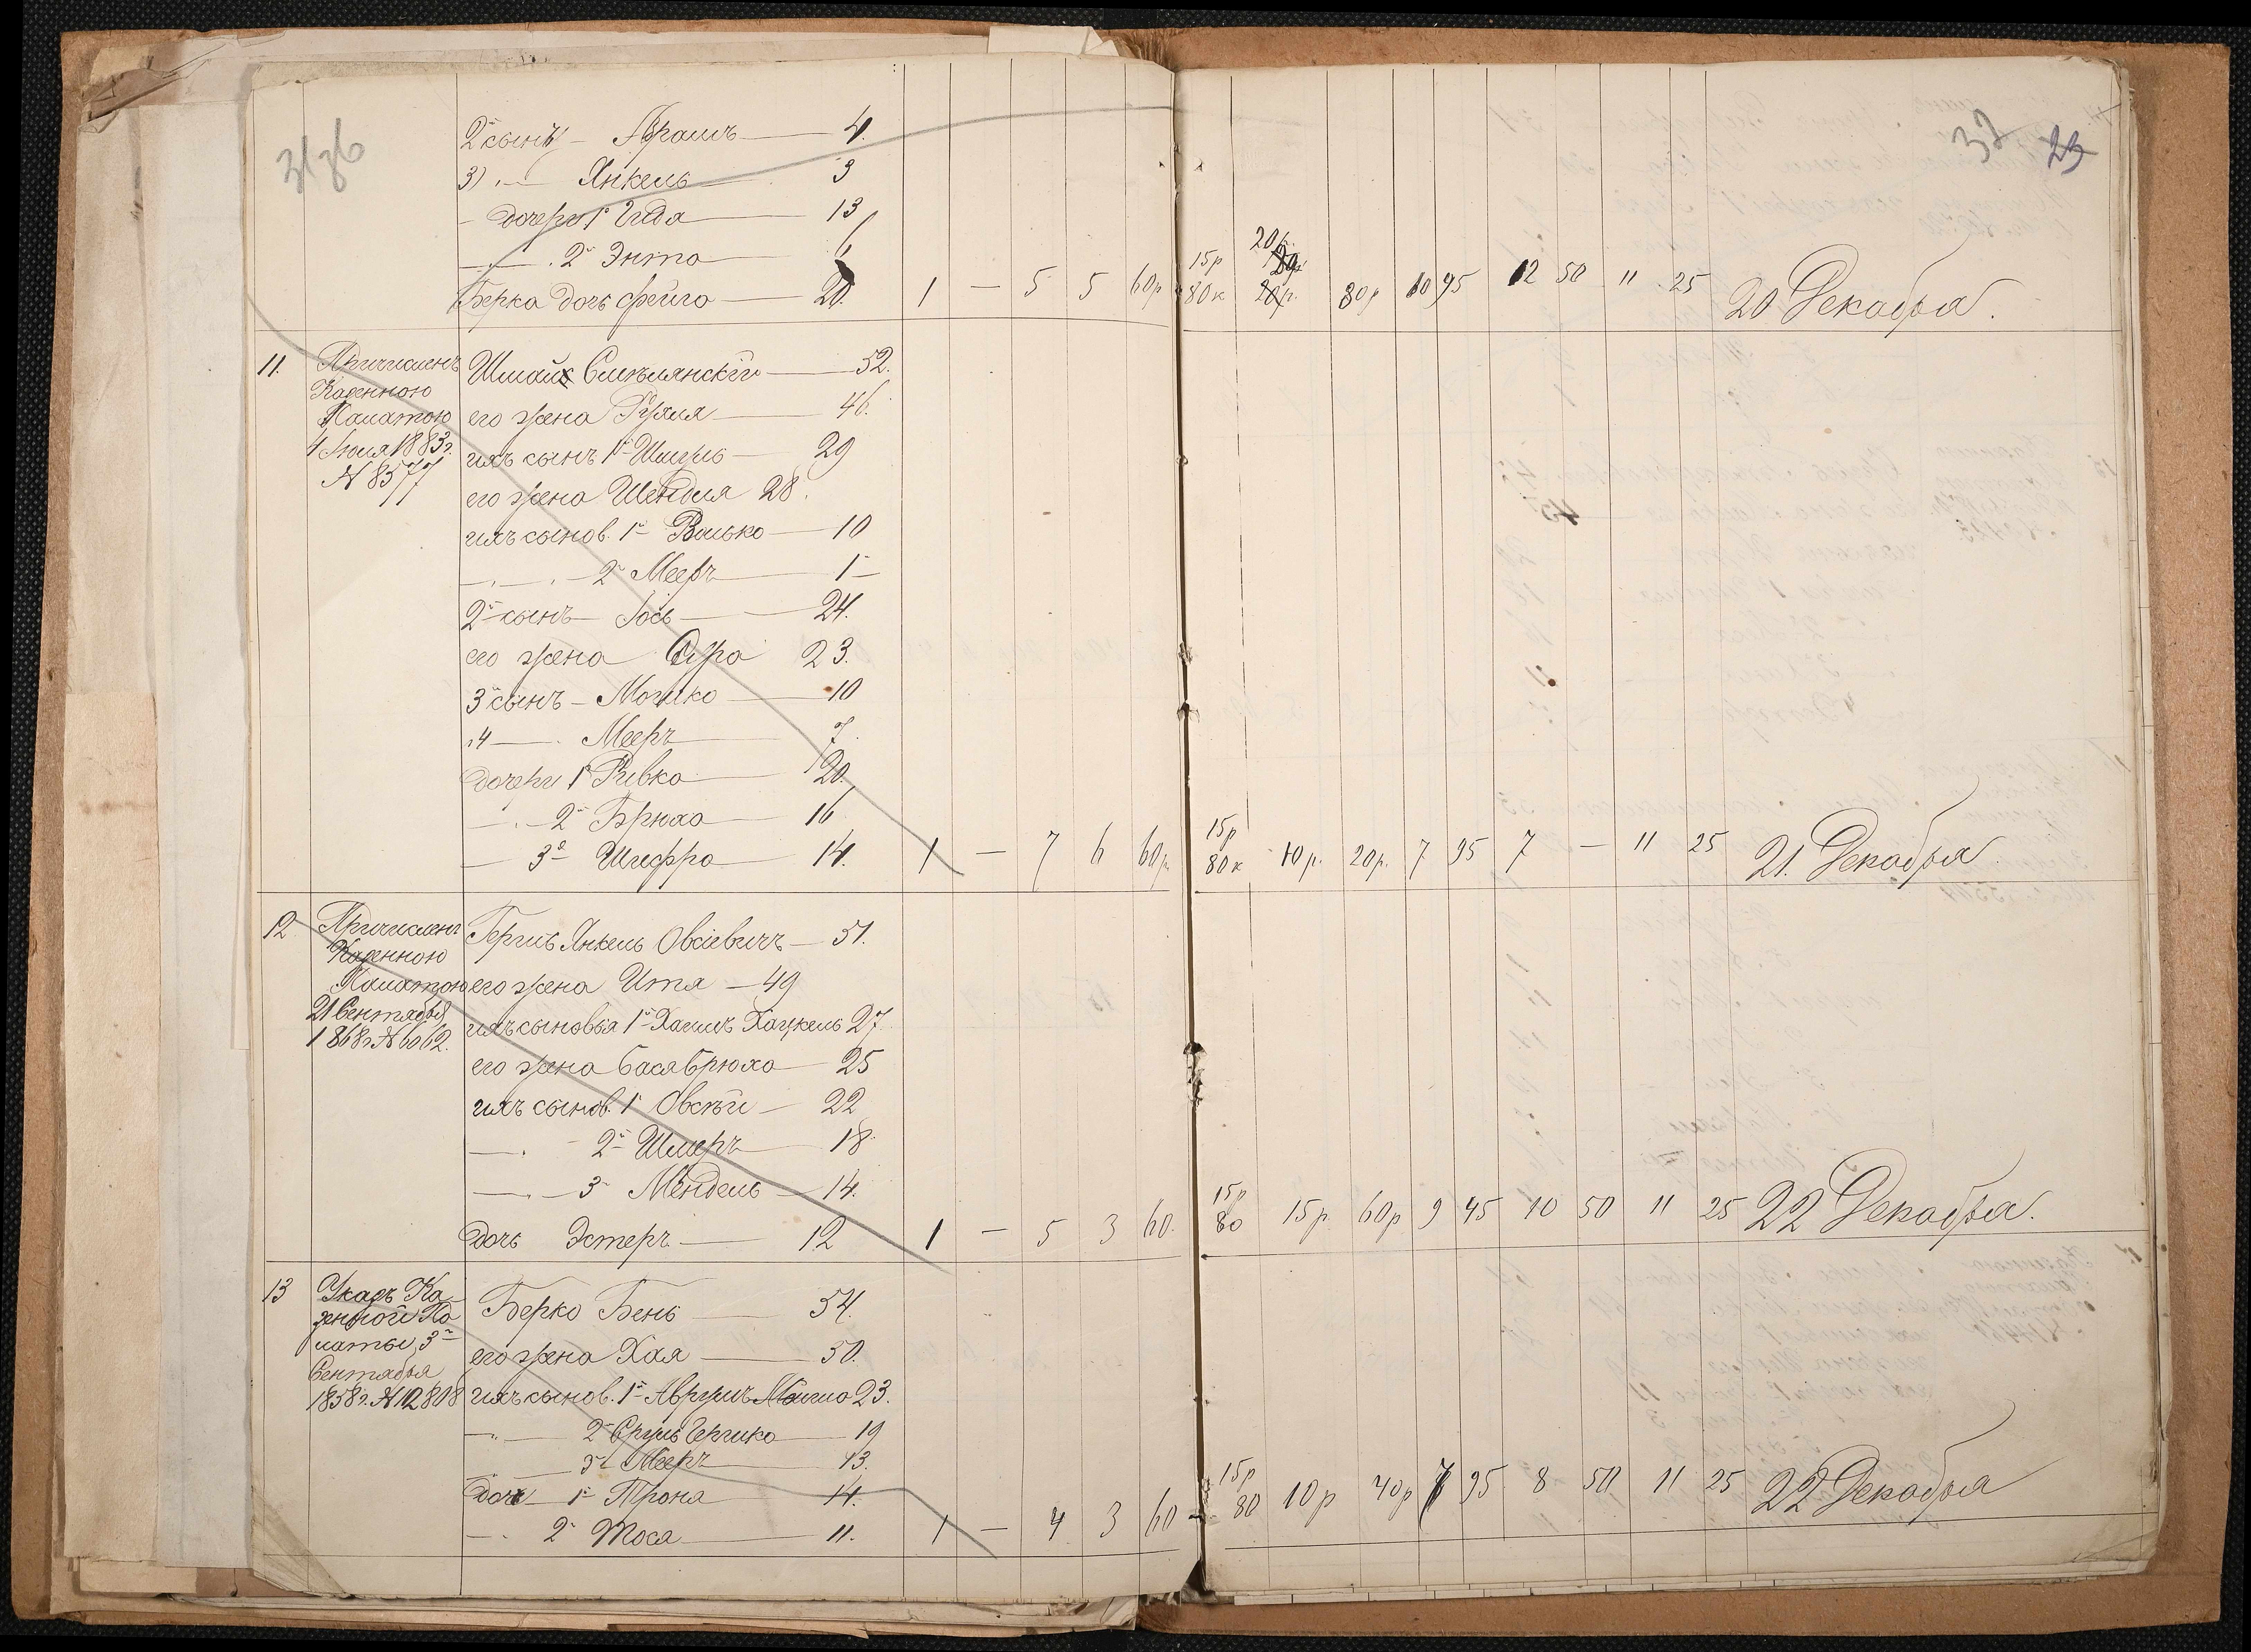 36
37 23
2й сынъ — Абрамъ — 4.
3) „— Янкель — 3
— дочери 1я Гидя — 13
—„— 2я Энта — 6
Берка дочь Фейга — 20. 1 — 5 5 60р 15р 80к 20р. 80р 10 95 12 50 11 25 20 Декабря.
11. Причисленъ Казенною Палатою 4 Іюля 1883г. № 8577
Шмай Смѣлянскій — 52.
его жена Рухля — 46.
ихъ сынъ 1й Шмуль — 29
его жена Шендля 28.
ихъ сынов. 1й Волько — 10
—„— 2й Мееръ — 1
2й сынъ — Іось — 24.
его жена Сура 23.
3й сынъ — Мошко — 10
„4 —„ Мееръ — 7.
дочери 1я Ривка — 20.
—„— 2я Брюха — 16
— 3я Шифра — 14. 1 — 7 6 60р. 15р 80к 10р. 20р. 7 95 7 — 11 25 21. Декабря.
12. Причисленъ Казенною Палатою 21 Сентября 1868г. № 6062.
Гершъ Янкель Овсіевичъ — 51.
его жена Итя — 49
ихъ сыновья 1й Хаимъ Хацкель 27.
его жена Бася Брюха — 25
ихъ сынов. 1й Овсѣй — 22
—„— 2й Шмеръ — 18
—„— 3й Мендель — 14.
дочь Эстеръ — 12 1 — 5 3 60. 15р 80 15р. 60р 9 45 10 50 11 25 22 Декабря.
13 Указъ Казенной Палаты, 3го Сентября 1858г. № 12808
Берко Бень — 54.
его жена Хая — 50.
ихъ сынов. 1й Аврумъ 23.
—„— 2й Сруль Гершко — 19
—„— 3й Мееръ — 13.
дочь 1я Троня — 14.
—„ 2я Тося — 11. 1 — 4 3 60 15р 80 10р 40р 7 95 8 50 11 25 22 Декабря